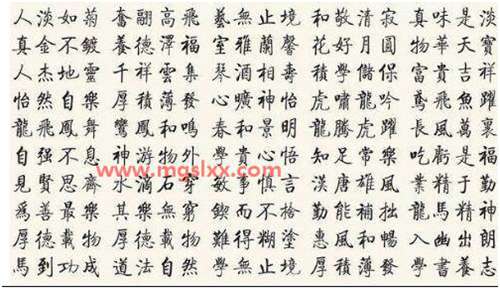 人淡如菊 奮翮高飛 藝無止境 和敬清寂 真味是淡
真金不鍍 養德澤福 室雅蘭馨 花好月圓 物華天寶
人杰地靈 千祥雲集 琴酒相壽 積學儲保 富貴吉祥
怡然自樂 厚積薄發 心曠神怡 虎嘯龍吟 鳶飛魚躍
龍飛鳳舞 鸞鳳和鳴 春和景明 龍騰虎躍 長風萬裏
自强不息 神游物外 學貴心悟 知足常樂 吃虧是福
www.mgslxx.com
見賢思齊 水滴石穿 敏事慎言 漢唐雄風 業精于勤
爲善最樂 其樂無窮 鍥而不捨 勤能補拙 龍馬精神
厚德載物 難得糊塗 惠風和暢 入幽出朗
馬到功成 道法自然 學無止境 厚積薄發 學書養志